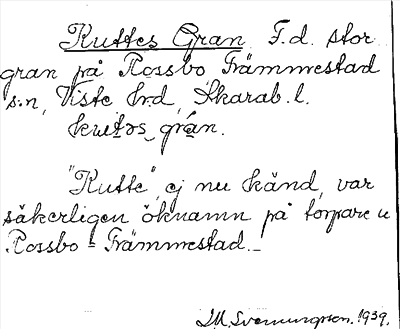 Kuttes Gran F.d. stor
gran på Rossbo, Främmestad
s:n, Viste hrd, Skarab. l.
"Kutte", ej nu känd, var
säkerligen öknamn på torpare u
Rossbo - Främmestad.
1939.